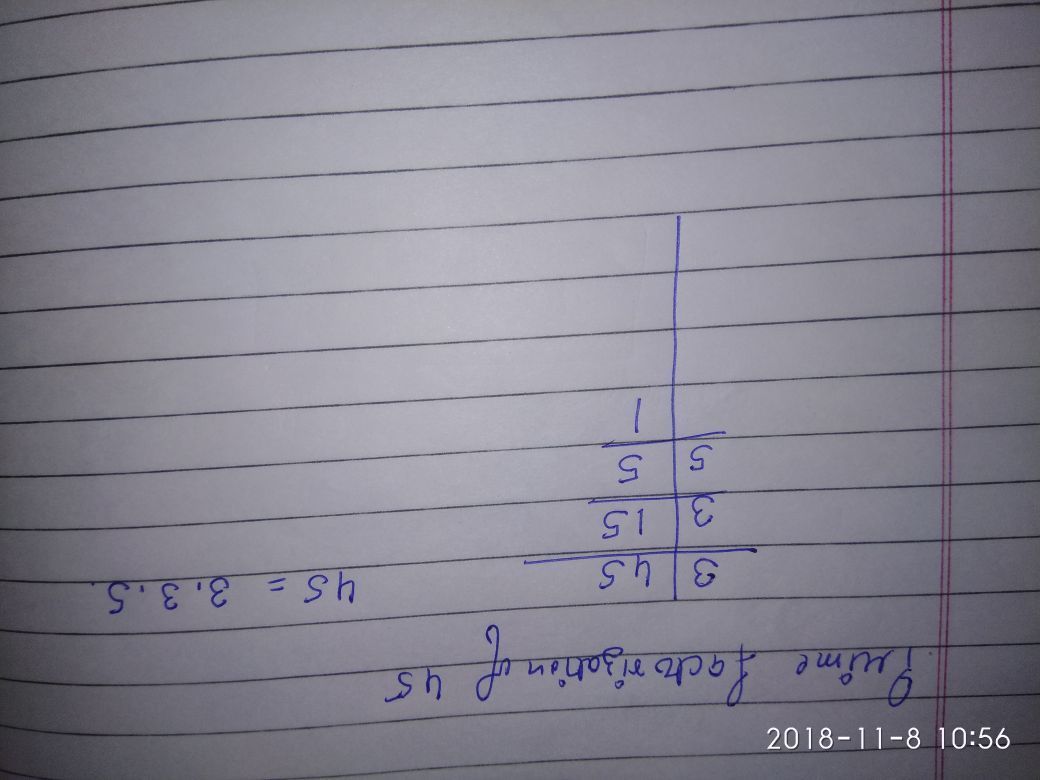 Prime factorization of 45
3 | 45
3 | 15
5 | 5
1
45 = 3.3.5.
2018-11-8 10:56